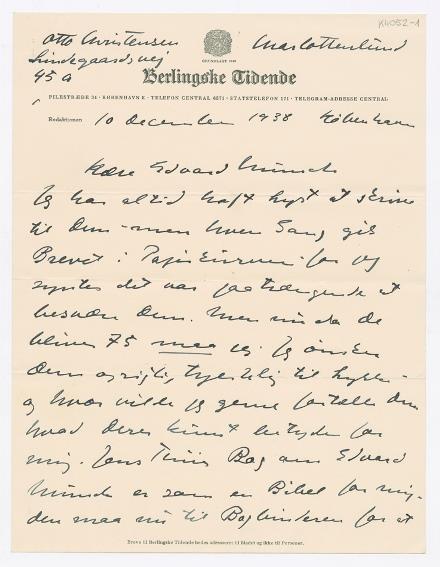 KK052-1
Otto Christensen
Lindegaardsvej
45 a
Charlottenlund
GRUNDLAGT 1749
Berlingske Tidende
PILESTRÆDE 34 · KØBENHAVN K · TELEFON CENTRAL 6571 · STATSTELEFON 171 · TELEGRAM-ADRESSE CENTRAL
Redaktionen
10 December 1938 København
Kære Edvard Munch
Jeg har altid haft Lyst at skrive
til Dem - men hver Gang gik
Brevet i Papirkurven - for jeg
syntes det var paatrængende at
besvære Dem. Men nu da De
bliver 75 maa jeg. Jeg ønsker
Dem oprigtig, hjertelig til Lykke -
og hvor vilde jeg gerne fortælle Dem
hvad Deres Kunst betyder for
mig. Jens Thiis Bog om Edvard
Munch er som en Bibel for mig -
den maa nu til Bogbinderen for at
Breve til Berlingske Tidende bedes adresseret til Bladet og ikke til Personer.